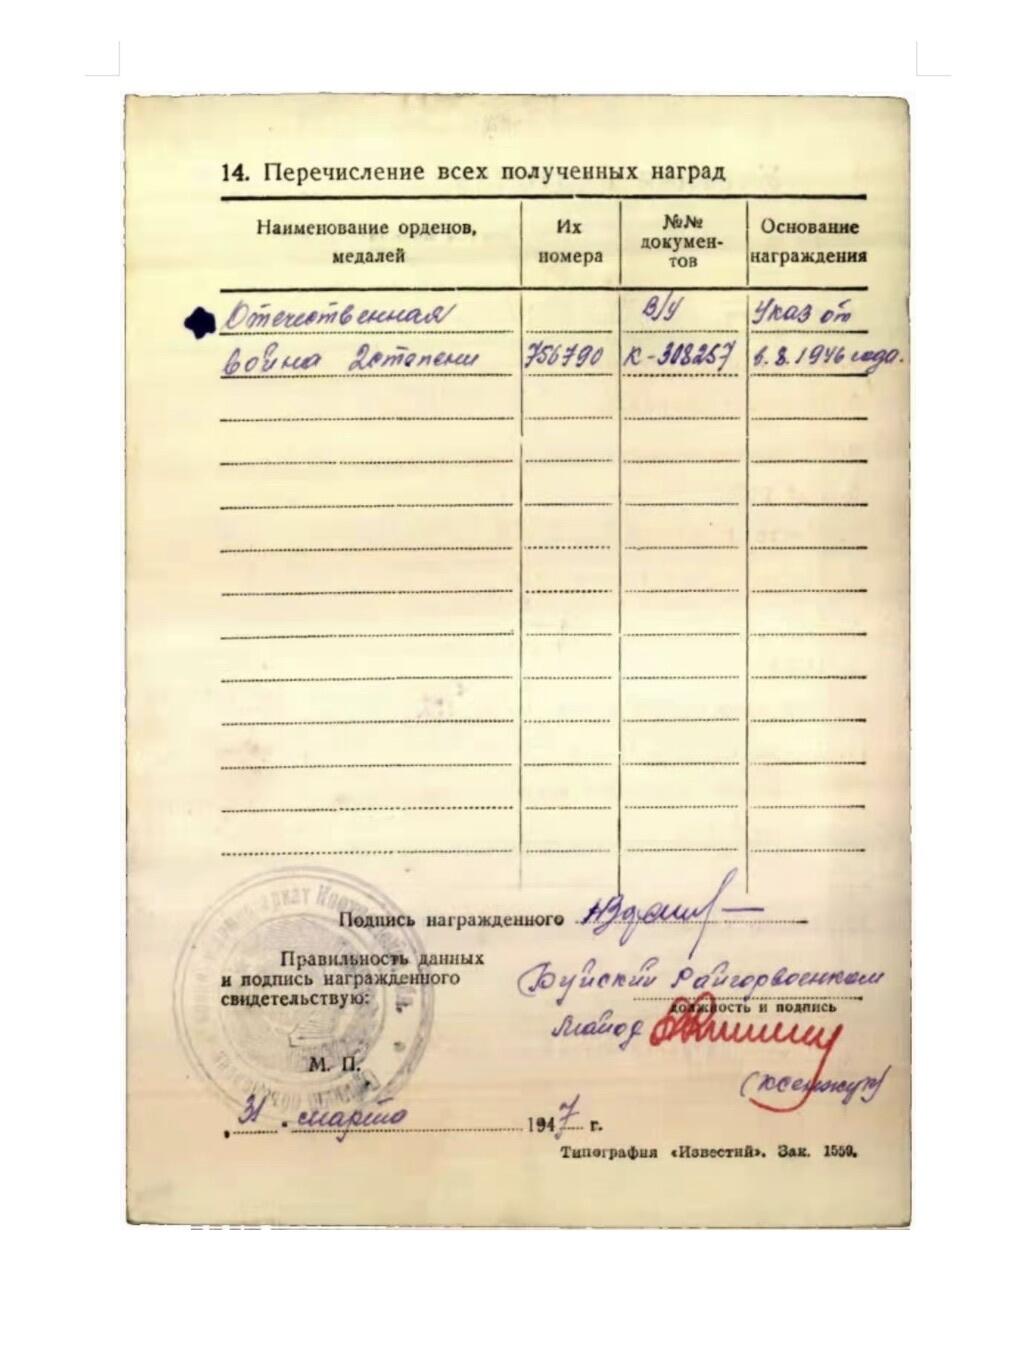 14. Перечисление всех полученных наград
Наименование орденов, медалей
Их номера
№№ докумен-тов
Основание награждения
Отечественная В/У Указ от
война 2 степени 756790 К-308257 6.8.1946 года.
Подпись награжденного
Правильность данных
и подпись награжденного
свидетельствую:
Буйский Райгорвоенком
должность и подпись
Майор
М. П.
31 марта 1947 г.
Типография «Известий». Зак. 1559.